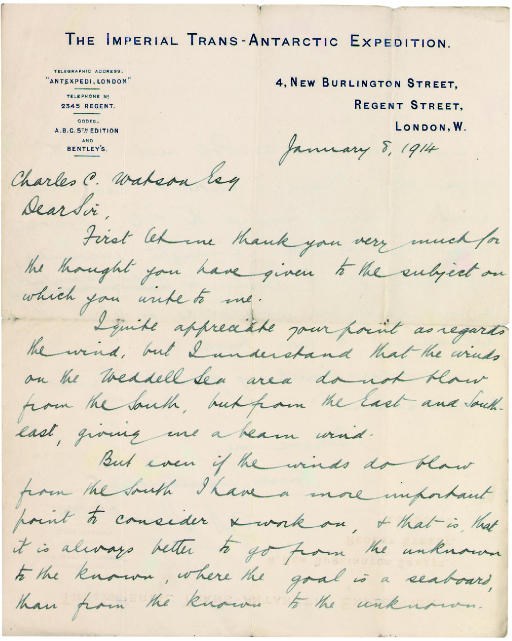 THE IMPERIAL TRANS-ANTARCTIC EXPEDITION.
TELEGRAPHIC ADDRESS:
"ANTEXPEDI, LONDON"
TELEPHONE No
2345 REGENT.
CODES:
A.B.C. 5TH EDITION
AND
BENTLEY'S.
4, NEW BURLINGTON STREET,
REGENT STREET,
LONDON, W.
January 8, 1914
Charles C. Watson Esq
Dear Sir,
First let me thank you very much for
the thought you have given to the subject on
which you write to me.
I quite appreciate your point as regards
the wind, but I understand that the winds
on the Weddell Sea area do not blow
from the South, but from the East and South-
east, giving me a beam wind.
But even if the winds do blow
from the South I have a more important
point to consider & work on, & that is, that
it is always better to go from the unknown
to the known, where the goal is a seaboard,
than from the known to the unknown.